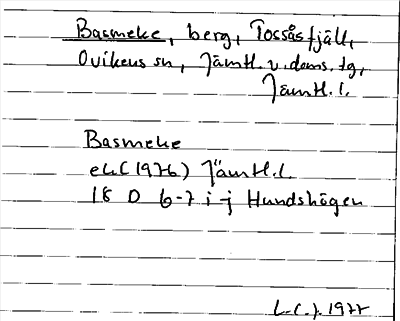 Basmeke, berg, Tossåsfjäll,
Ovikens sn, Jämtl. v. doms. tg,
Jämtl. l.
Basmeke
ek (1976) Jämtl. l.
18 D 6-7 i-j Hundshögen
L. C. J. 1977